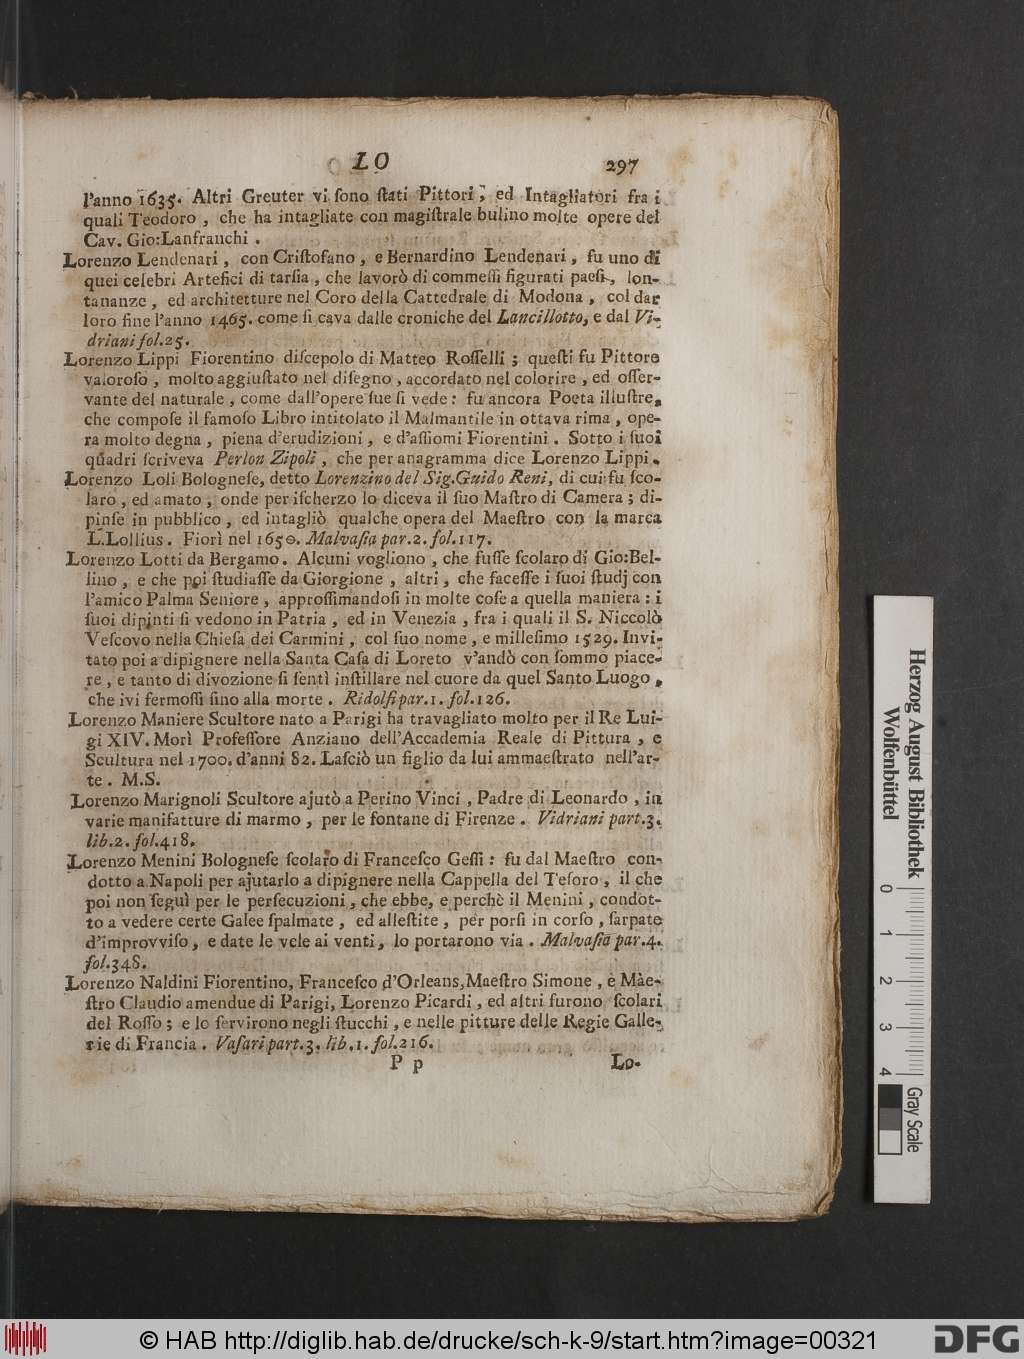 LO 297
l'anno 1635. Altri Greuter vi ſono ſtati Pittori, ed Intagliatori fra i
quali Teodoro, che ha intagliate con magiſtrale bulino molte opere del
Cav. Gio: Lanfranchi.
Lorenzo Lendenari, con Criſtofano, e Bernardino Lendenari, fu uno di
quei celebri Artefici di tarſia, che lavorò di commeſſi figurati paeſi, lon-
tananze, ed architetture nel Coro della Cattedrale di Modona, col dar
loro fine l'anno 1465. come ſi cava dalle croniche del Lancillotto, e dal Vi-
driani fol.25.
Lorenzo Lippi Fiorentino diſcepolo di Matteo Roſſelli; queſti fu Pittore
valoroſo, molto aggiuſtato nel diſegno, accordato nel colorire, ed oſſer-
vante del naturale, come dall'opere ſue ſi vede: fu ancora Poeta illuſtre,
che compoſe il famoſo Libro intitolato il Malmantile in ottava rima, ope-
ra molto degna, piena d'erudizioni, e d'aſſiomi Fiorentini. Sotto i ſuoi
quadri ſcriveva Perlon Zipoli, che per anagramma dice Lorenzo Lippi.
Lorenzo Loli Bologneſe, detto Lorenzino del Sig. Guido Reni, di cui fu ſco-
laro, ed amato, onde per iſcherzo lo diceva il ſuo Maſtro di Camera; di-
pinſe in pubblico, ed intagliò qualche opera del Maeſtro con la marca
L. Lollius. Fiorì nel 1650. Malvaſia par.2. fol.117.
Lorenzo Lotti da Bergamo. Alcuni vogliono, che fuſſe ſcolaro di Gio: Bel-
lino, e che poi ſtudiaſſe da Giorgione, altri, che faceſſe i ſuoi ſtudj con
l'amico Palma Seniore, approſſimandoſi in molte coſe a quella maniera: i
ſuoi dipinti ſi vedono in Patria, ed in Venezia, fra i quali il S. Niccolò
Veſcovo nella Chieſa dei Carmini, col ſuo nome, e milleſimo 1529. Invi-
tato poi a dipignere nella Santa Caſa di Loreto v'andò con ſommo piace-
re, e tanto di divozione ſi ſentì inſtillare nel cuore da quel Santo Luogo,
che ivi fermoſſi ſino alla morte. Ridolfi par.1. fol.126.
Lorenzo Maniere Scultore nato a Parigi ha travagliato molto per il Re Lui-
gi XIV. Morì Profeſſore Anziano dell'Accademia Reale di Pittura, e
Scultura nel 1700. d'anni 82. Laſciò un figlio da lui ammaeſtrato nell'ar-
te. M.S.
Lorenzo Marignoli Scultore ajutò a Perino Vinci, Padre di Leonardo, in
varie manifatture di marmo, per le fontane di Firenze. Vidriani part.3.
lib.2. fol.418.
Lorenzo Menini Bologneſe ſcolaro di Franceſco Geſſi: fu dal Maeſtro con-
dotto a Napoli per ajutarlo a dipignere nella Cappella del Teſoro, il che
poi non ſeguì per le perſecuzioni, che ebbe, e perchè il Menini, condot-
to a vedere certe Galee ſpalmate, ed alleſtite, per porſi in corſo, ſarpate
d'improvviſo, e date le vele ai venti, lo portarono via. Malvaſia par.4.
fol.348.
Lorenzo Naldini Fiorentino, Franceſco d'Orleans, Maeſtro Simone, e Mae-
ſtro Claudio amendue di Parigi, Lorenzo Picardi, ed altri furono ſcolari
del Roſſo; e lo ſervirono negli ſtucchi, e nelle pitture delle Regie Galle-
rie di Francia. Vaſari part.3. lib.1. fol.216.
P p Lo-
Herzog August Bibliothek
Wolfenbüttel
0 1 2 3 4
Gray Scale
© HAB http://diglib.hab.de/drucke/sch-k-9/start.htm?image=00321
DFG